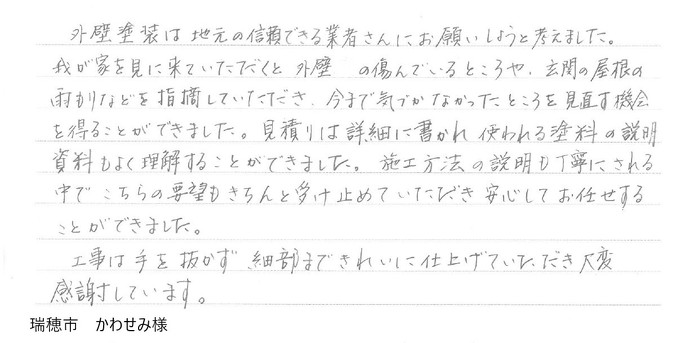 外壁塗装は地元の信頼できる業者さんにお願いしようと考えました。
我が家を見に来ていただくと外壁 の傷んでいるところや、玄関の屋根の
雨もりなどを指摘していただき、今まで気づかなかったところを見直す機会
を得ることができました。見積りは詳細に書かれ使われる塗料の説明
資料もよく理解することができました。施工方法の説明も丁寧にされる
中でこちらの要望もきちんと受け止めていただき安心してお任せする
ことができました。
工事は手を抜かず細部まできれいに仕上げていただき大変
感謝しています。
瑞穂市 かわせみ様